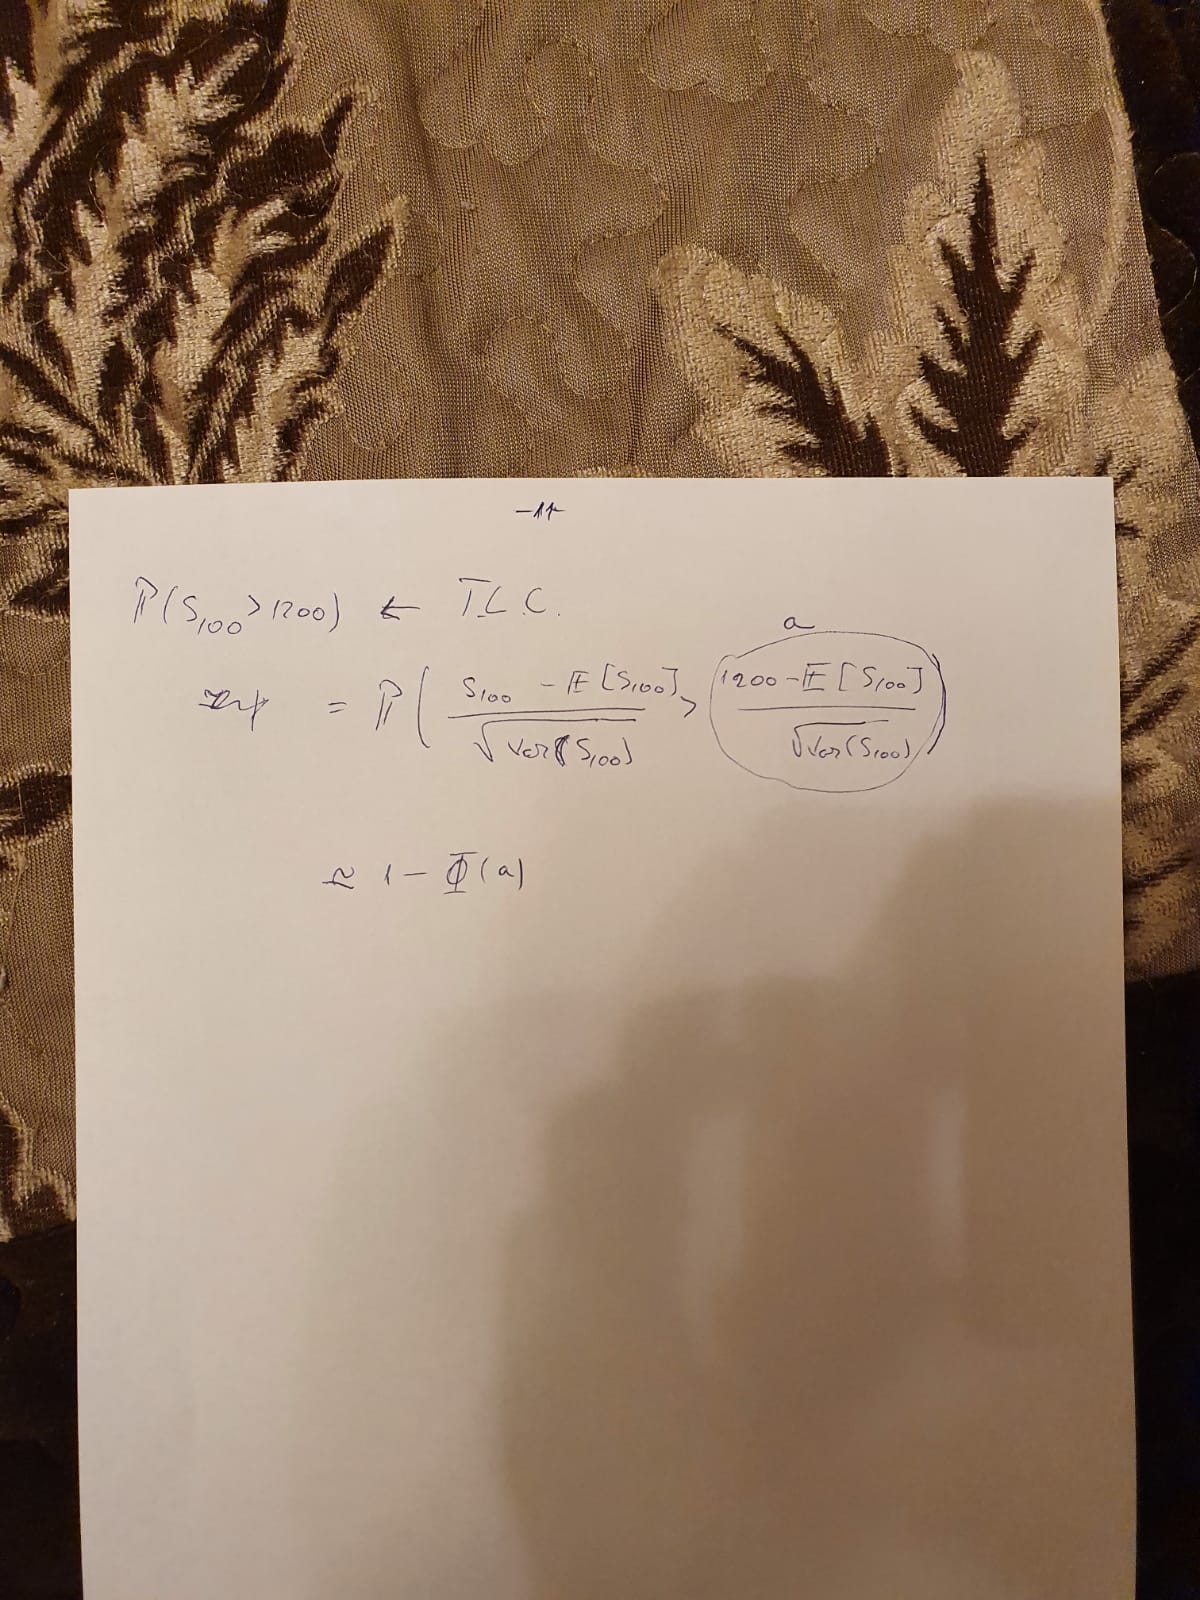 P(S₁₀₀ > 1200) ← T.L.C.
a
= P( (S₁₀₀ − E[S₁₀₀]) / √Var(S₁₀₀) > (1200 − E[S₁₀₀]) / √Var(S₁₀₀) )
≈ 1 − Φ(a)